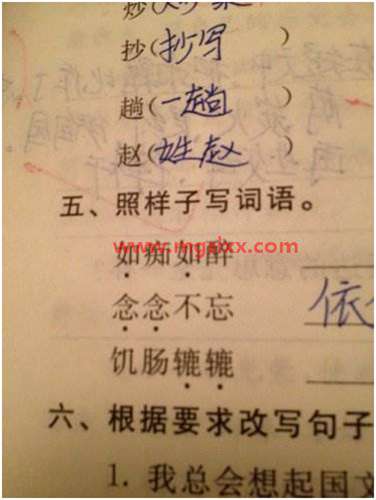 炒(
抄(抄写)
趟(一趟)
赵(姓赵)
五、照样子写词语。
www.mgsdxx.com
如痴如醉
念念不忘 依
饥肠辘辘
六、根据要求改写句子
1. 我总会想起国文